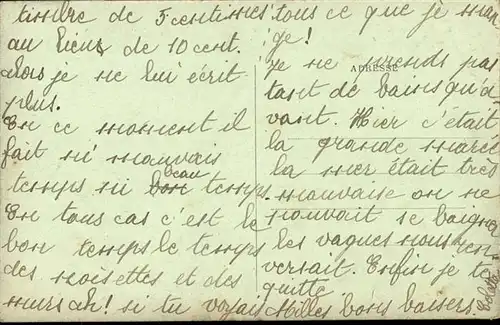 timbre de 5 centimes
au lieu de 10 cent.
Alors je ne lui écrit
plus.
En ce moment il
fait ni mauvais
temps ni beau temps.
En tous cas c'est le
bon temps le temps
des noisettes et des
mûrs ah! si tu voyais
tous ce que je man
ge!
ADRESSE
Je ne prends pas
tant de bains qu'a
vant. Hier c'était
la grande marée
la mer était très
mauvaise on ne
pouvait se baigner
les vagues nous ren-
versait. Enfin je te
quitte
Milles bons baisers.